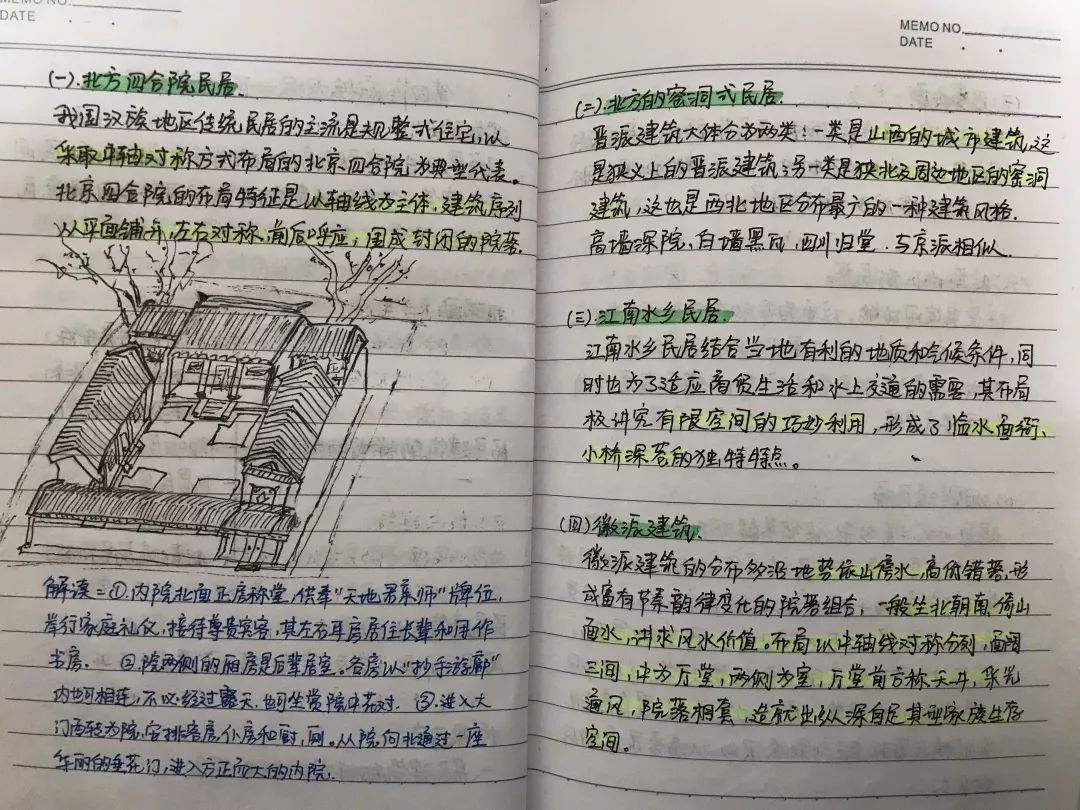 MEMO NO.
DATE
(一).北方四合院民居.
我国汉族地区传统民居的主流是规整式住宅,以
采取中轴对称方式布局的北京四合院为典型代表。
北京四合院的布局特征是以轴线为主体,建筑序列
以平面铺开,左右对称,前后呼应,围成封闭的院落.
解读:①.内院北面正房称堂,供奉“天地君亲师”牌位,
举行家庭礼仪,接待尊贵宾客,其左右耳房居住长辈和用作
书房. ②.院两侧的厢房是后辈居室。各房以“抄手游廊”
内也可相连,不必经过露天.也可坐赏院中花树. ③.进入大
门西转为院,安排客房,仆房和厨,厕。从院向北通过一座
华丽的垂花门,进入方正而大的内院.
MEMO NO.
DATE
(二).北方的窑洞式民居.
晋派建筑大体分为两类:一类是山西的城市建筑,这
是狭义上的晋派建筑;另一类是陕北及周边地区的窑洞
建筑,这也是西北地区分布最广的一种建筑风格.
高墙深院,白墙黑瓦,四川归堂.与京派相似.
(三).江南水乡民居.
江南水乡民居结合当地有利的地质和气候条件,同
时也为了适应商贸生活和水上交通的需要,其布局
极讲究有限空间的巧妙利用,形成了临水面街、
小桥深巷的独特特点。
(四)徽派建筑.
徽派建筑的分布多沿地势依山傍水,高低错落,形
成富有节奏韵律变化的院落组合,一般坐北朝南,倚山
面水,讲求风水价值。布局以中轴线对称分列,面阔
三间,中为厅堂,两侧为室,厅堂前方称天井,采光
通风,院落相套,造就出纵深自足其型家族生存
空间。